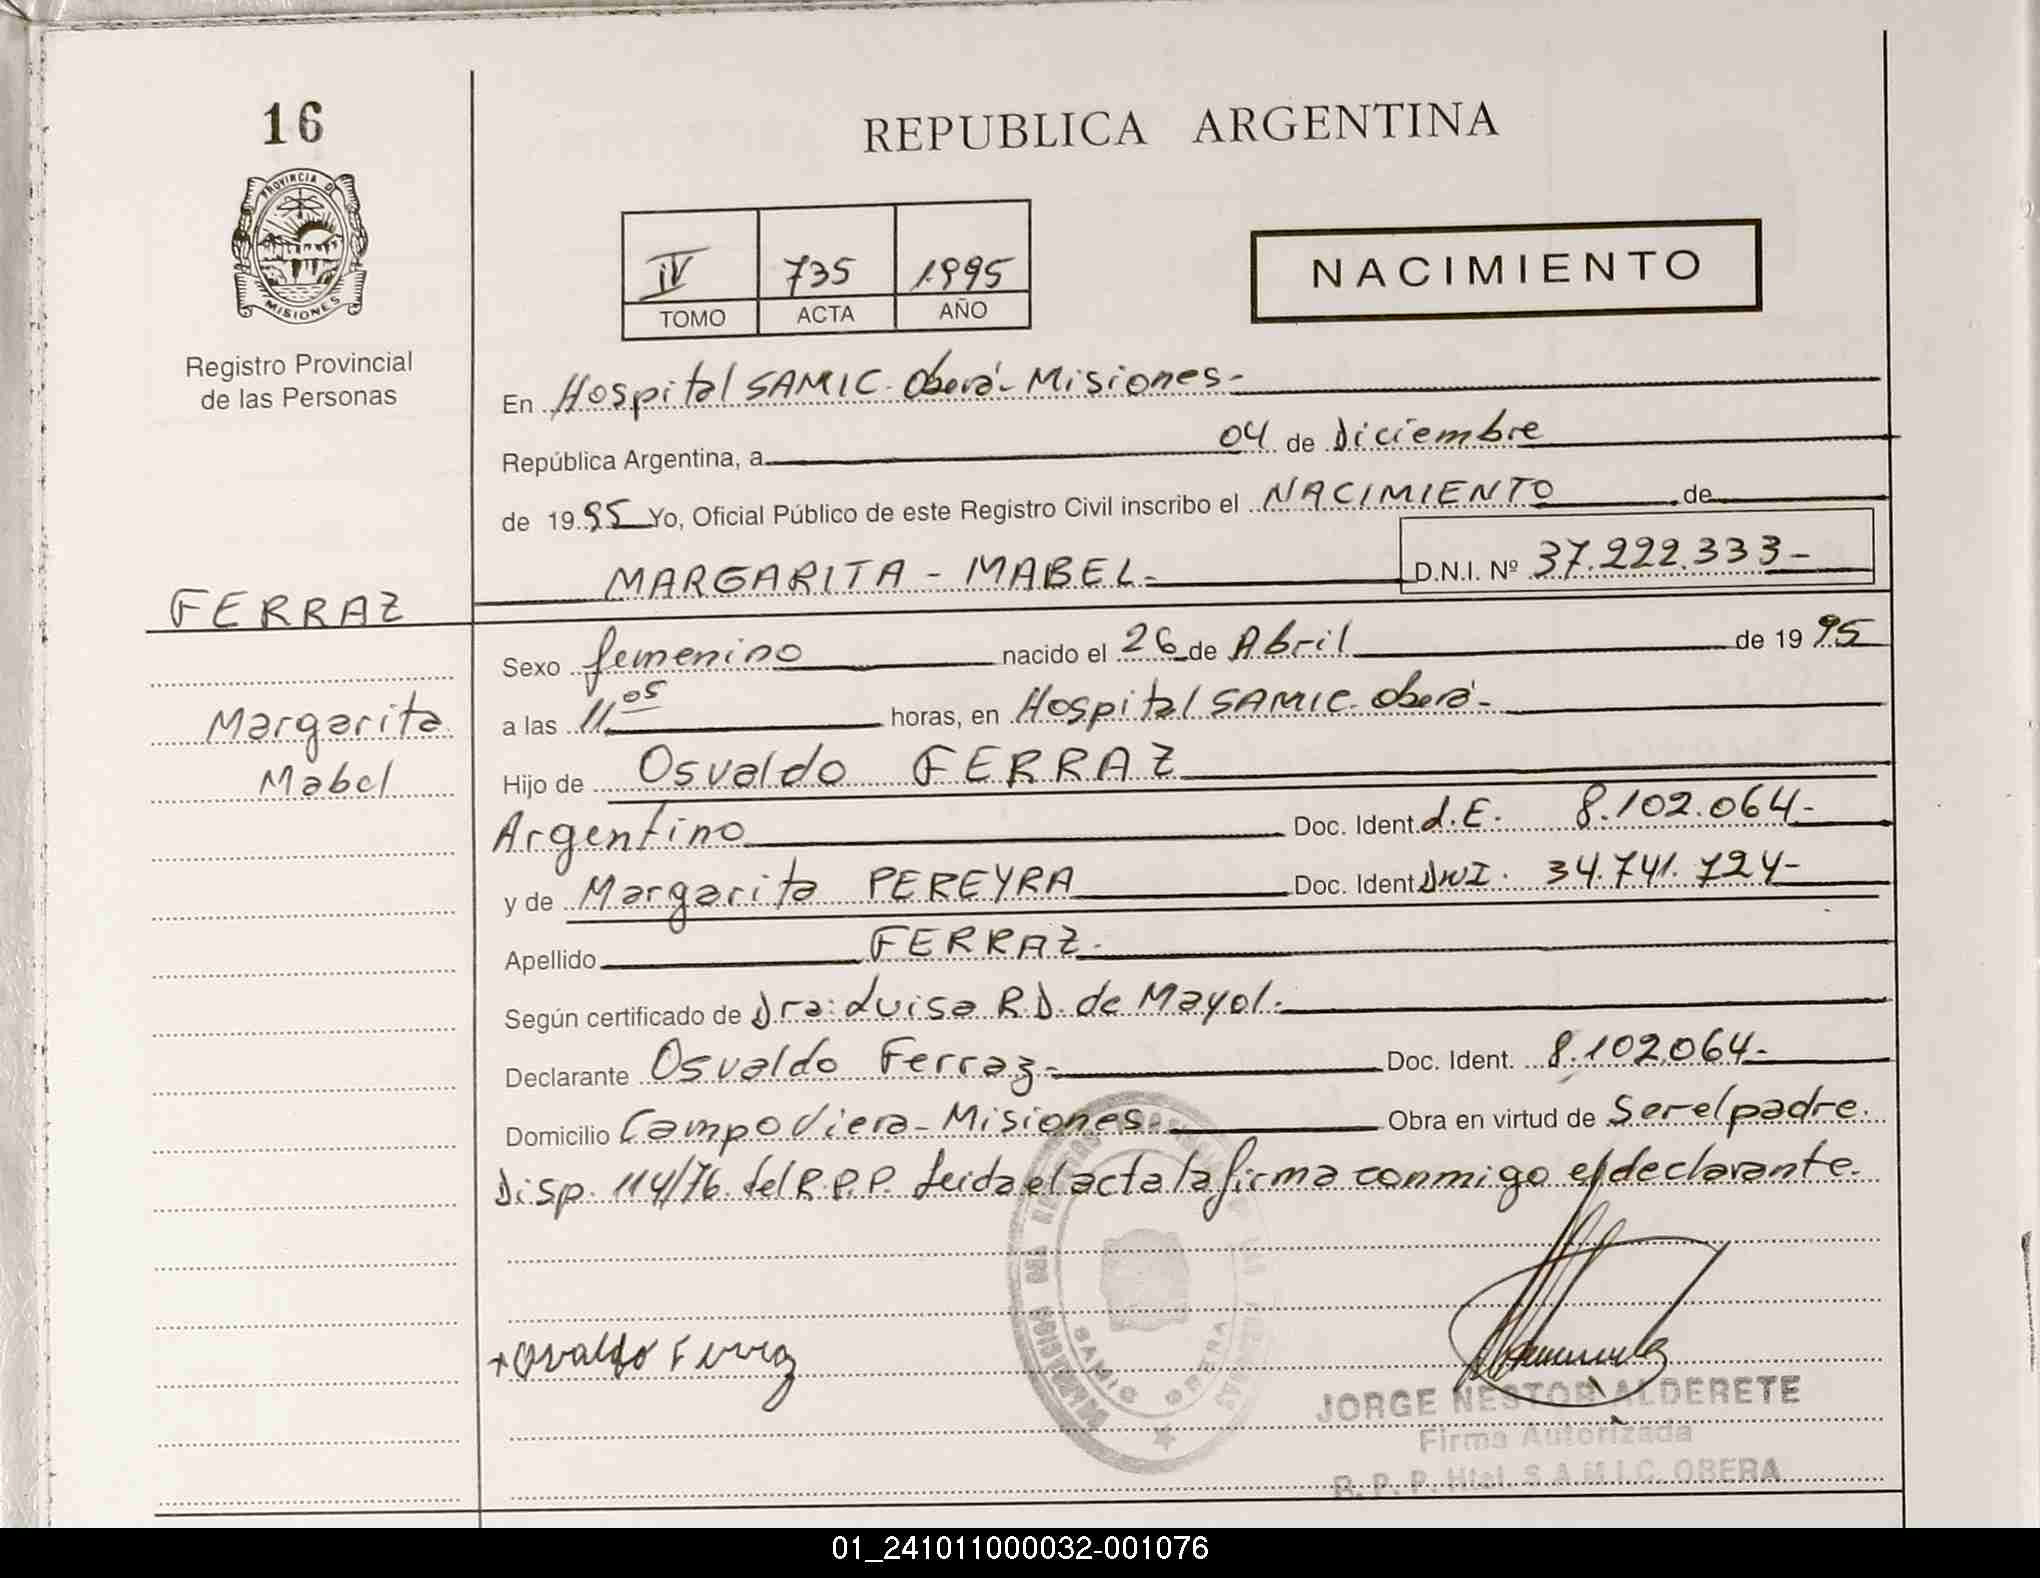 16
PROVINCIA D
MISIONES
Registro Provincial
de las Personas
FERRAZ
Margarita
Mabel
REPUBLICA ARGENTINA
IV 735 1995
TOMO ACTA AÑO
NACIMIENTO
En Hospital SAMIC. Oberá- Misiones-
República Argentina, a 04 de Diciembre
de 1995 Yo, Oficial Público de este Registro Civil inscribo el NACIMIENTO de
MARGARITA - MABEL- D.N.I. Nº 37.222.333-
Sexo femenino nacido el 26 de Abril de 1995
a las 11 05 horas, en Hospital SAMIC. Oberá-
Hijo de Osvaldo FERRAZ
Argentino Doc. Ident. L.E. 8.102.064-
y de Margarita PEREYRA Doc. Ident DNI. 34.741.724-
Apellido FERRAZ.
Según certificado de Dra: Luisa R.D. de Mayol.
Declarante Osvaldo Ferraz- Doc. Ident. 8.102.064-
Domicilio Campo Viera- Misiones. Obra en virtud de Ser el padre.
Disp. 114/76. del R.P.P. Leida el acta la firma conmigo el declarante.
+Osvaldo Ferraz
SAMIC OBERA
JORGE NESTOR ALDERETE
Firma Autorizada
R. P. P. Htal. S.A.M.I.C. OBERA
01_241011000032-001076